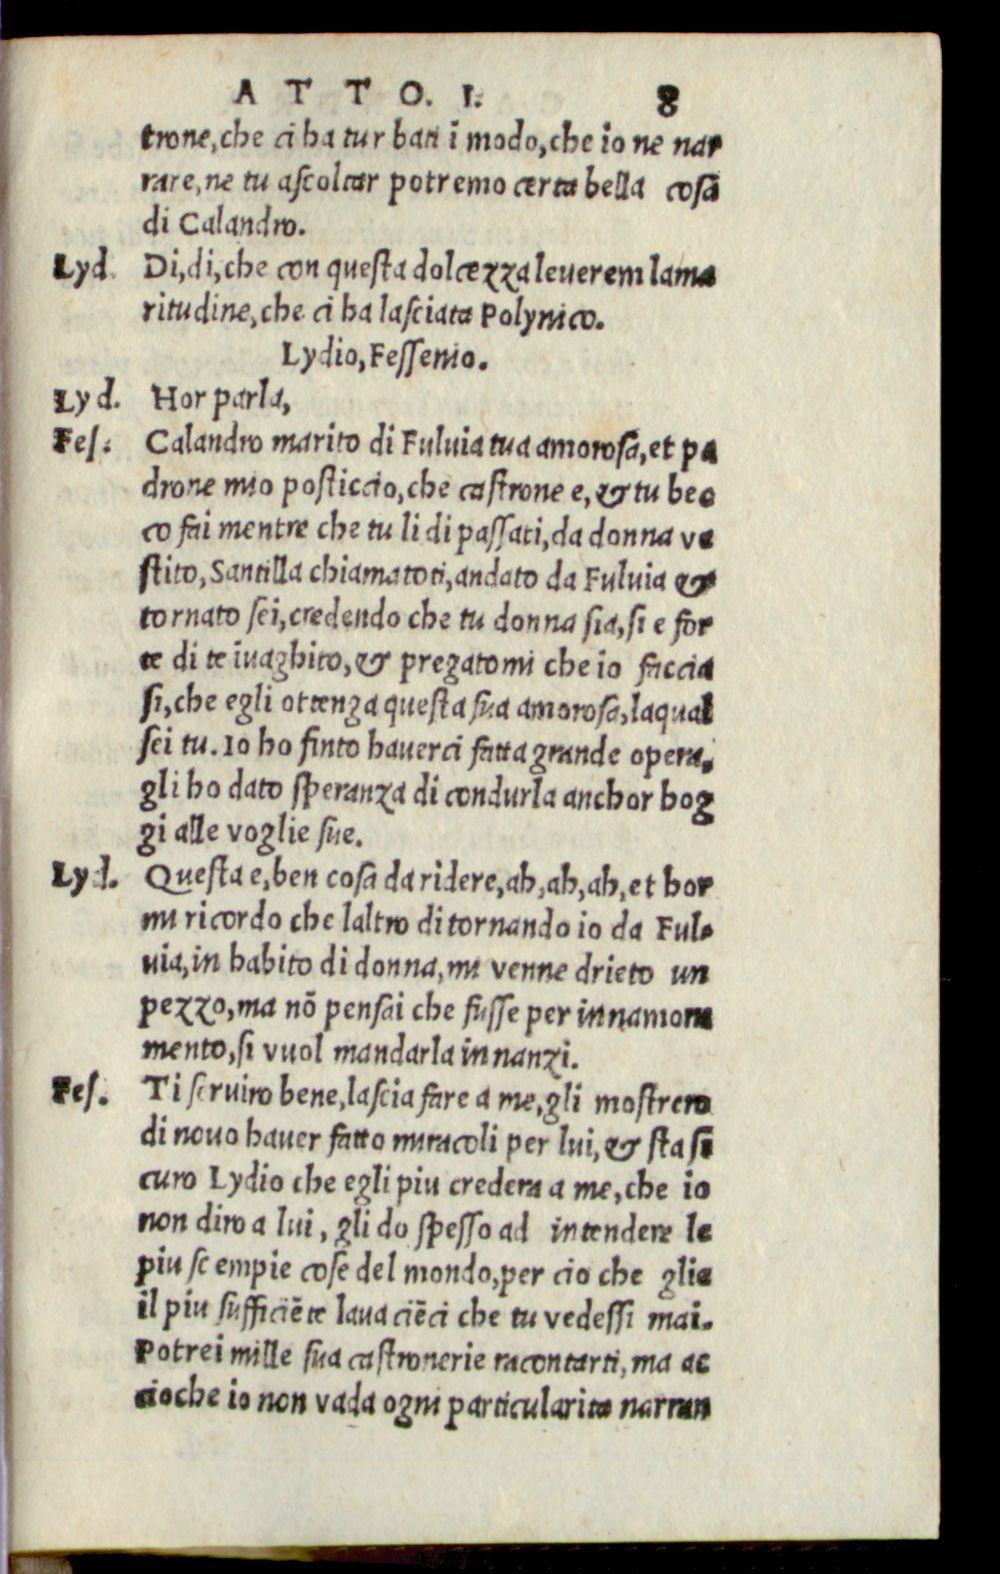 ATTO. I. 8
trone, che ci ha tur bati ĩ modo, che io ne nar
rare, ne tu ascoltar potremo certa bella cosa
di Calandro.
Lyd. Di, di, che con questa dolcezza leuerem lama
ritudine, che ci ha lasciata Polynico.
Lydio, Fessenio.
Lyd. Hor parla,
Fes. Calandro marito di Fuluia tua amorosa, et pa
drone mio posticcio, che castrone e, & tu bec
co fai mentre che tu li di passati, da donna ve
stito, Santilla chiamatoti, andato da Fuluia &
tornato sei, credendo che tu donna sia, si e for
te di te iuaghito, & pregatomi che io faccia
si, che egli ottenga questa sua amorosa, laqual
sei tu. Io ho finto hauerci fatta grande opera,
gli ho dato speranza di condurla anchor hog
gi alle voglie sue.
Lyd. Questa e, ben cosa da ridere, ah, ah, ah, et hor
mi ricordo che laltro di tornando io da Ful
uia, in habito di donna, mi venne drieto un
pezzo, ma nõ pensai che fusse per innamora
mento, si vuol mandarla innanzi.
Fes. Ti seruiro bene, lascia fare a me, gli mostrero
di nouo hauer fatto miracoli per lui, & sta si
curo Lydio che egli piu credera a me, che io
non diro a lui, gli do spesso ad intendere le
piu sc empie cose del mondo, per cio che glie
il piu sufficiẽte laua ciẽci che tu vedessi mai.
Potrei mille sua castronerie racontarti, ma ac
cioche io non vada ogni particularita narran